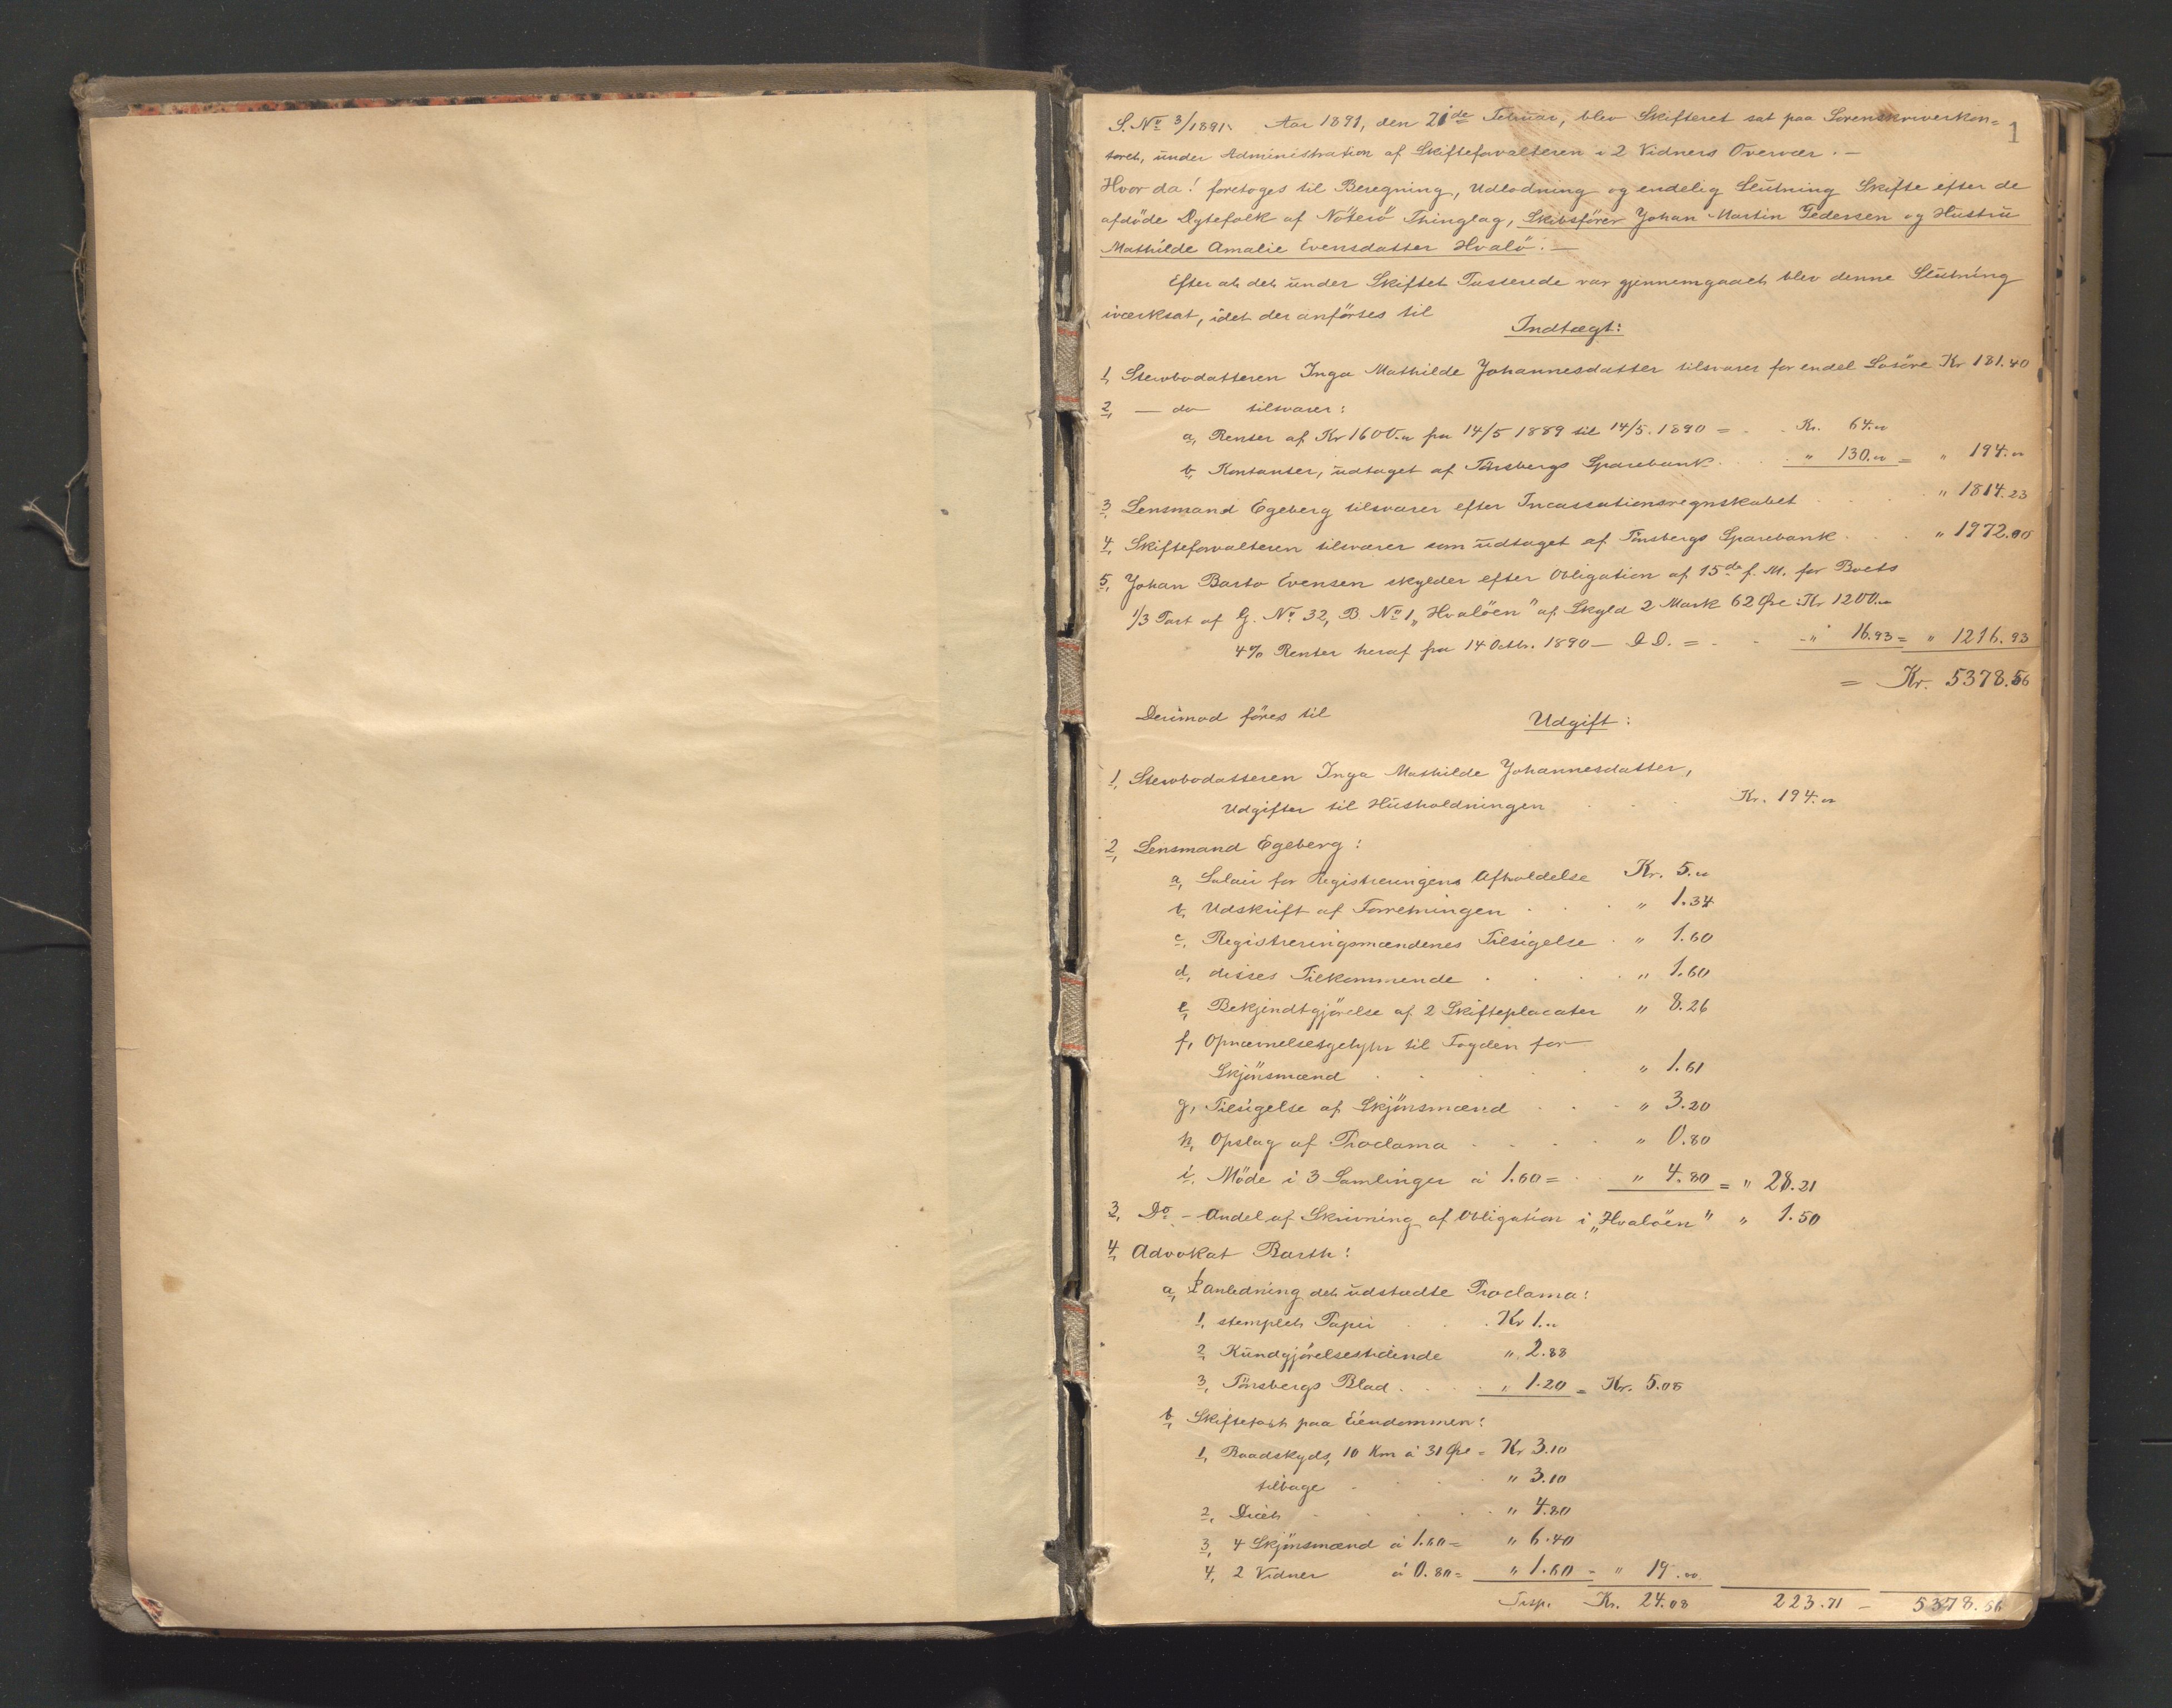 1
S. No 3/1891. Aar 1891, den 21de Februar, blev Skifteret sat paa Sorenskriverkon=
toret, under Administration af Skifteforvalteren i 2 Vidners Overvær. —
Hvor da! foretoges til Beregning, Udlodning og endelig Slutning Skifte efter de
afdöde Ægtefolk af Nöterö Thinglag, Skibsförer Johan Martin Pedersen og Hustru
Mathilde Amalie Evensdatter Hvalö. —
Efter at det under Skiftet Passerede var gjennemgaaet blev denne Slutning
iværksat, idet der anförtes til
Indtægt:
1, Stervbodatteren Inga Mathilde Johannesdatter tilsvarer for endel Lösöre Kr 181.40
2, — do — tilsvarer:
a, Renter af Kr 1600.00 fra 14/5 1889 til 14/5. 1890 = Kr. 64.00
b, Kontanter, udtaget af Tönsbergs Sparebank " 130.00 = " 194.00
3, Lensmand Egeberg tilsvarer efter Incassationsregnskabet " 1814.23
4, Skifteforvalteren tilsvarer som udtaget af Tönsbergs Sparebank " 1972.00
5, Johan Barto Evensen skylder efter Obligation af 15de f. M. for Boets
1/3 Part af G. No 32, B. No 1 „Hvalöen" af Skyld 2 Mark 62 Øre Kr 1200.00
4% Renter heraf fra 14 Octbr. 1890 — D.D. = " 16.93 = " 1216.93
= Kr. 5378.56
Derimod föres til Udgift:
1, Stervbodatteren Inga Mathilde Johannesdatter,
Udgifter til Husholdningen Kr. 194.00
2, Lensmand Egeberg:
a, Salair for Registreringens Afholdelse Kr. 5.00
b, Udskrift af Forretningen " 1.34
c, Registreringsmændenes Tilsigelse " 1.60
d, disses Tilkommende " 1.60
e, Bekjendtgjörelse af 2 Skifteplacater " 8.26
f, Opnævnelsesgebyhr til Fogden for
Skjönsmænd " 1.61
g, Tilsigelse af Skjönsmænd " 3.20
h, Opslag af Proclama " 0.80
i, Möde i 3 Samlinger à 1.60 = " 4.80 = " 28.21
3, Do - Andel af Skrivning af Obligation i „Hvalöen" " 1.50
4, Advokat Barth:
a, I Anledning det udstædte Proclama:
1, stemplet Papir Kr 1.00
2, Kundgjörelsestidende " 2.88
3, Tönsbergs Blad " 1.20 = Kr. 5.08
b, Skiftetaxt paa Eiendommen:
1, Baadskyds, 10 Km à 31 Øre = Kr 3.10
tilbage " 3.10
2, Diæt " 4.80
3, 4 Skjönsmænd à 1.60 = " 6.40
4, 2 Vidner à 0.80 = " 1.60 = " 19.00
Trsp. Kr. 24.08 223.71 — 5378.56